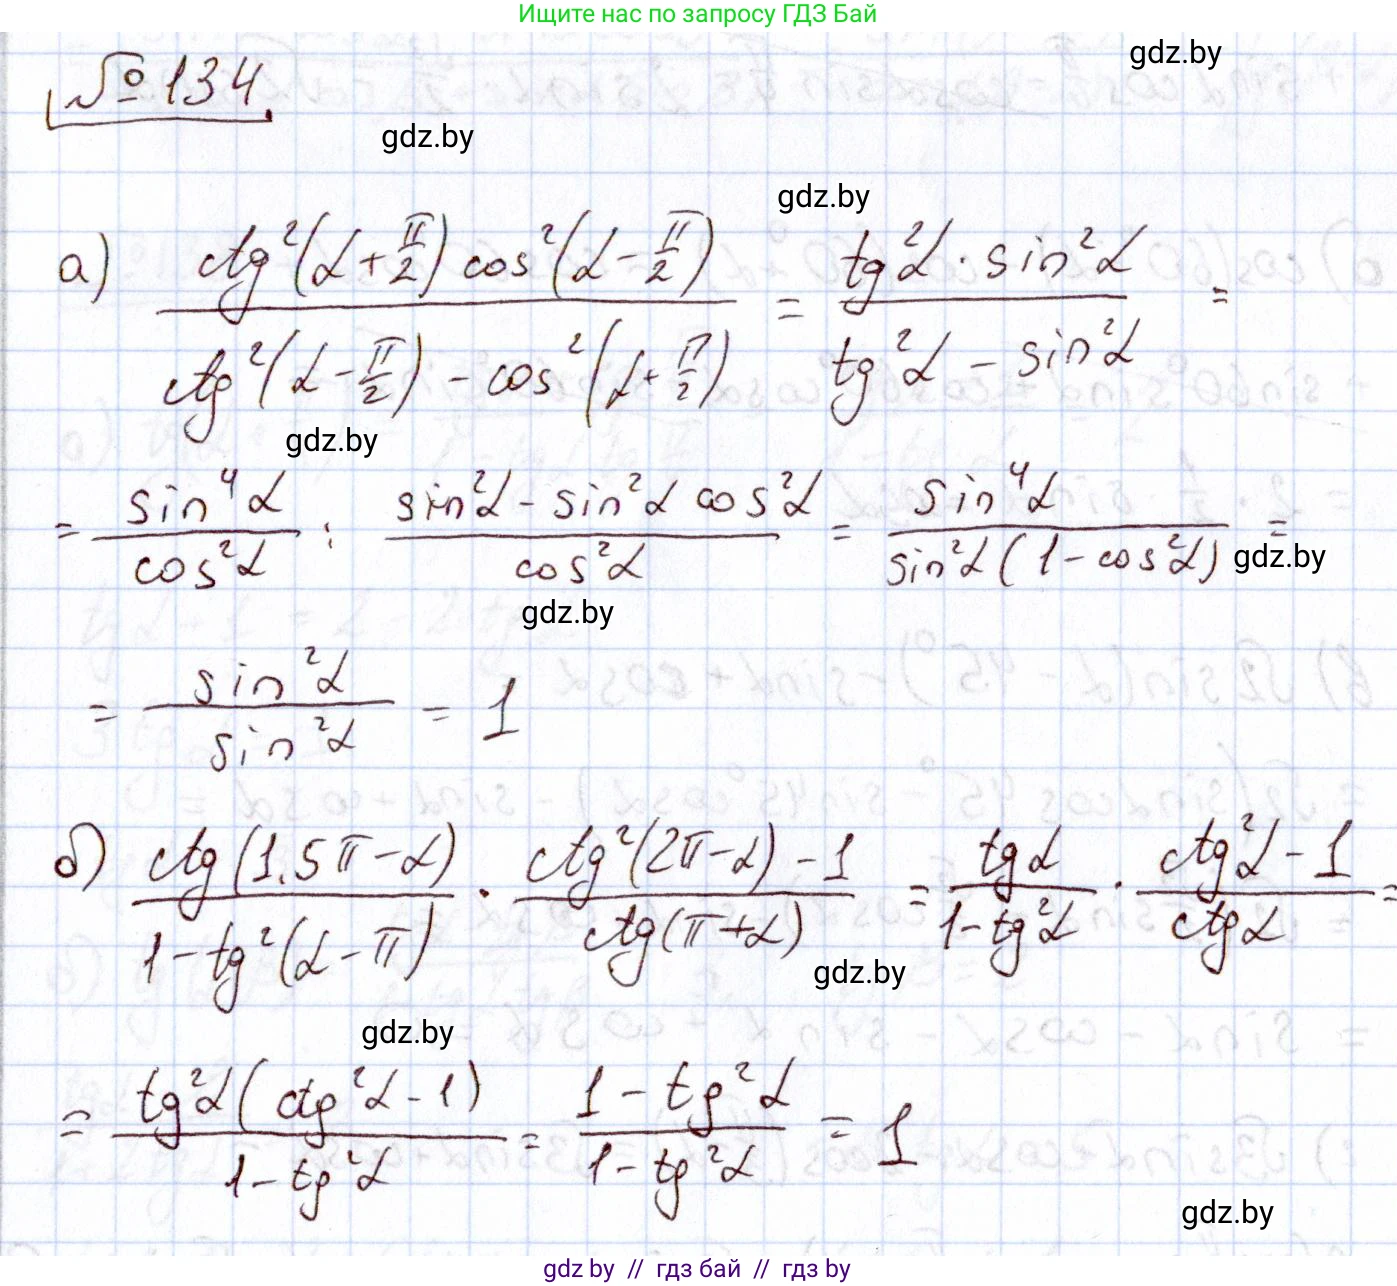 Ищите нас по запросу ГДЗ Бай
gdz.by
№ 134.
gdz.by
gdz.by
а) ctg²(α + π/2) cos²(α − π/2) / ctg²(α − π/2) − cos²(α + π/2) = tg²α · sin²α / tg²α − sin²α =
gdz.by
= sin⁴α / cos²α : sin²α − sin²α cos²α / cos²α = sin⁴α / sin²α (1 − cos²α) =
gdz.by
gdz.by
= sin²α / sin²α = 1
б) ctg(1,5π − α) / 1 − tg²(α − π) · ctg²(2π − α) − 1 / ctg(π + α) = tgα / 1 − tg²α · ctg²α − 1 / ctgα =
gdz.by
gdz.by
= tg²α (ctg²α − 1) / 1 − tg²α = 1 − tg²α / 1 − tg²α = 1
gdz.by
gdz by // гдз бай // гдз by